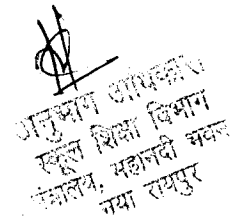 अनुभाग अधिकारी
स्कूल शिक्षा विभाग
मंत्रालय, महानदी भवन
नया रायपुर